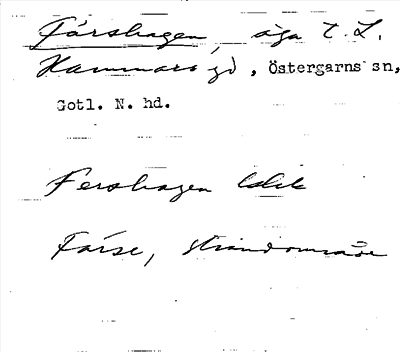 Färshagen, äga t. L.
Hammars gd, Östergarns sn,
Gotl. N. hd.
Fershagen
Färse, strandområde